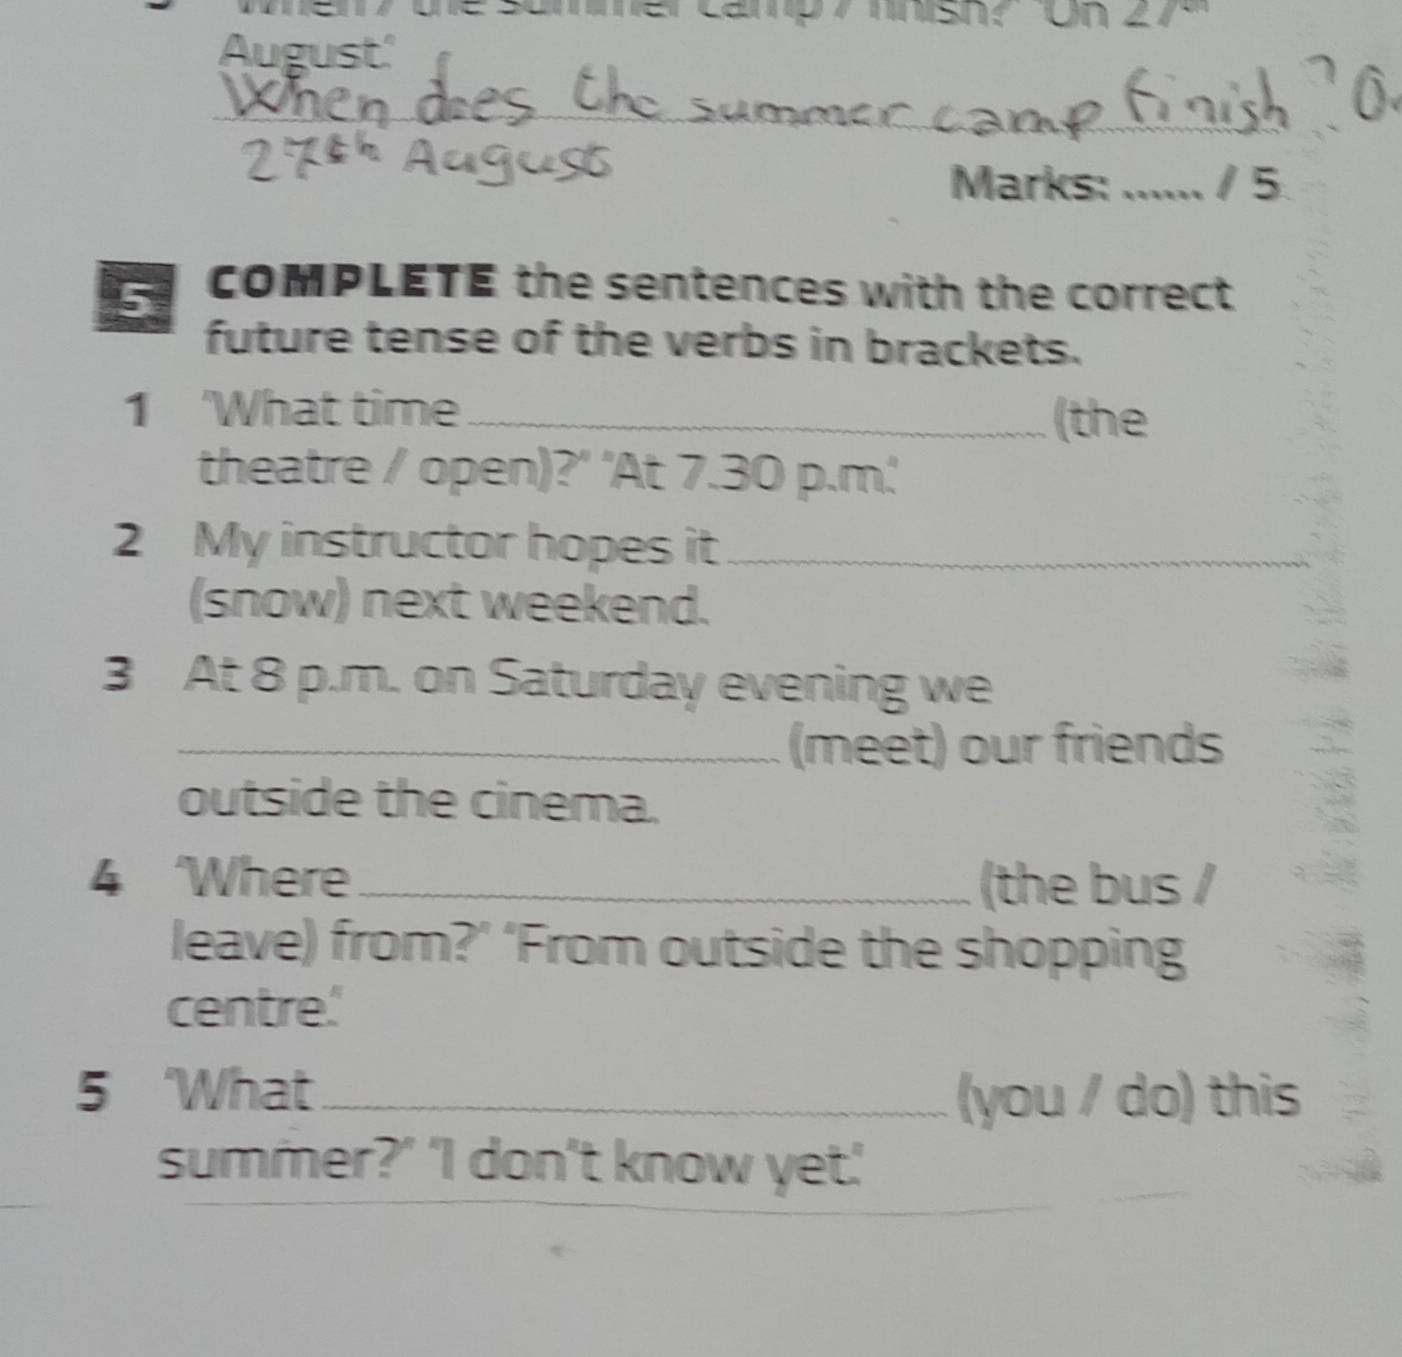 When / the summer camp / finish? 'On 27th
August.'
When does the summer camp finish? O
27th August
Marks: ...... / 5
5 COMPLETE the sentences with the correct
future tense of the verbs in brackets.
1 'What time ______ (the
theatre / open)?' 'At 7.30 p.m.'
2 My instructor hopes it ______
(snow) next weekend.
3 At 8 p.m. on Saturday evening we
______ (meet) our friends
outside the cinema.
4 'Where ______ (the bus /
leave) from?' 'From outside the shopping
centre.'
5 'What ______ (you / do) this
summer?' 'I don't know yet.'